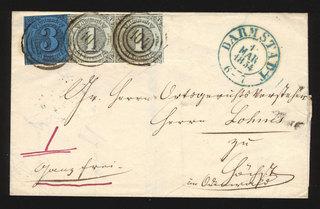 3 1 1
DARMSTADT
1
MAR
1854
6-7
Herrn Ortsgerichts Vorsteher
Herrn Lohnes
zu
Höchst
im Odenwald
ganz frei.